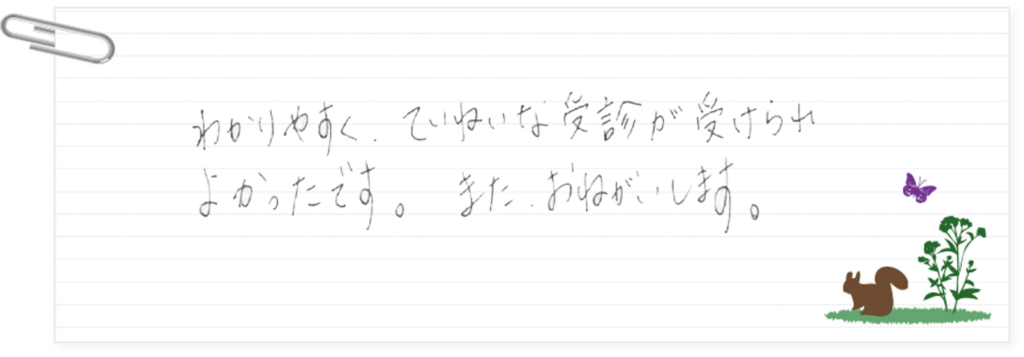 わかりやすく、ていねいな受診が受けられ
よかったです。また、おねがいします。